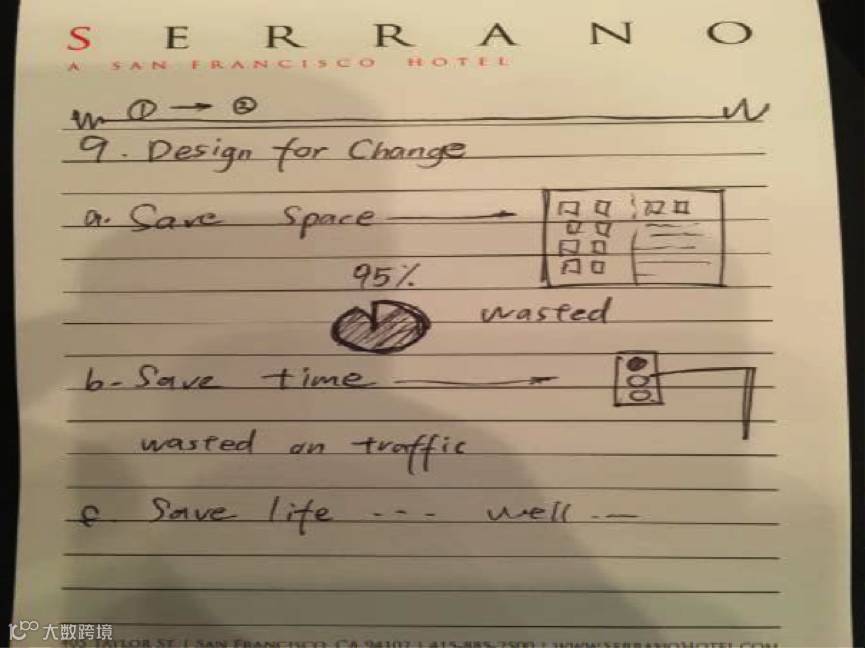 SERRANO
A SAN FRANCISCO HOTEL
① → ②
9. Design for Change
a. Save space
95%
wasted
b- Save time
wasted on traffic
c. Save life --- well --
大数跨境
TAYLOR ST | SAN FRANCISCO, CA 94102 | 415-885-2500 | WWW.SERRANOHOTEL.COM